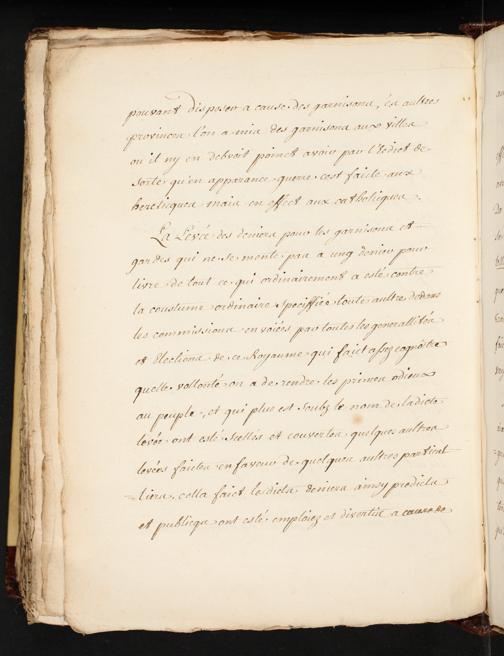 pouvant disposer a cause des garnisons, és autres
provinces l'on a mis des garnisons aux villes
ou il ny en debvoit poinct avoir par l'Edict de
sorte qu'en apparance guerre c'est faicte aux
heretiques mais en effect aux catholiques.
La Levée des deniers pour les garnisons et
gardes qui ne se monte pas a ung denier pour
livre de tout ce qui ordinairement a esté contre
la coustume ordinaire speciffiée toute aultre dedans
les commissions envoiées par toutes les generallitéz
et Elections de ce Royaume qui faict assez cognoistre
quelle vollonté on a de rendre les princes odieux
au peuple, et qui plus est soubz le nom de ladicte
levée ont esté scellés et couvertes quelques autres
levées faictes en faveur de quelques aultres particul
-liers, cella faict lesdicts deniers ainsy predicts
et publicqs ont esté emploiez et divertis a cause de